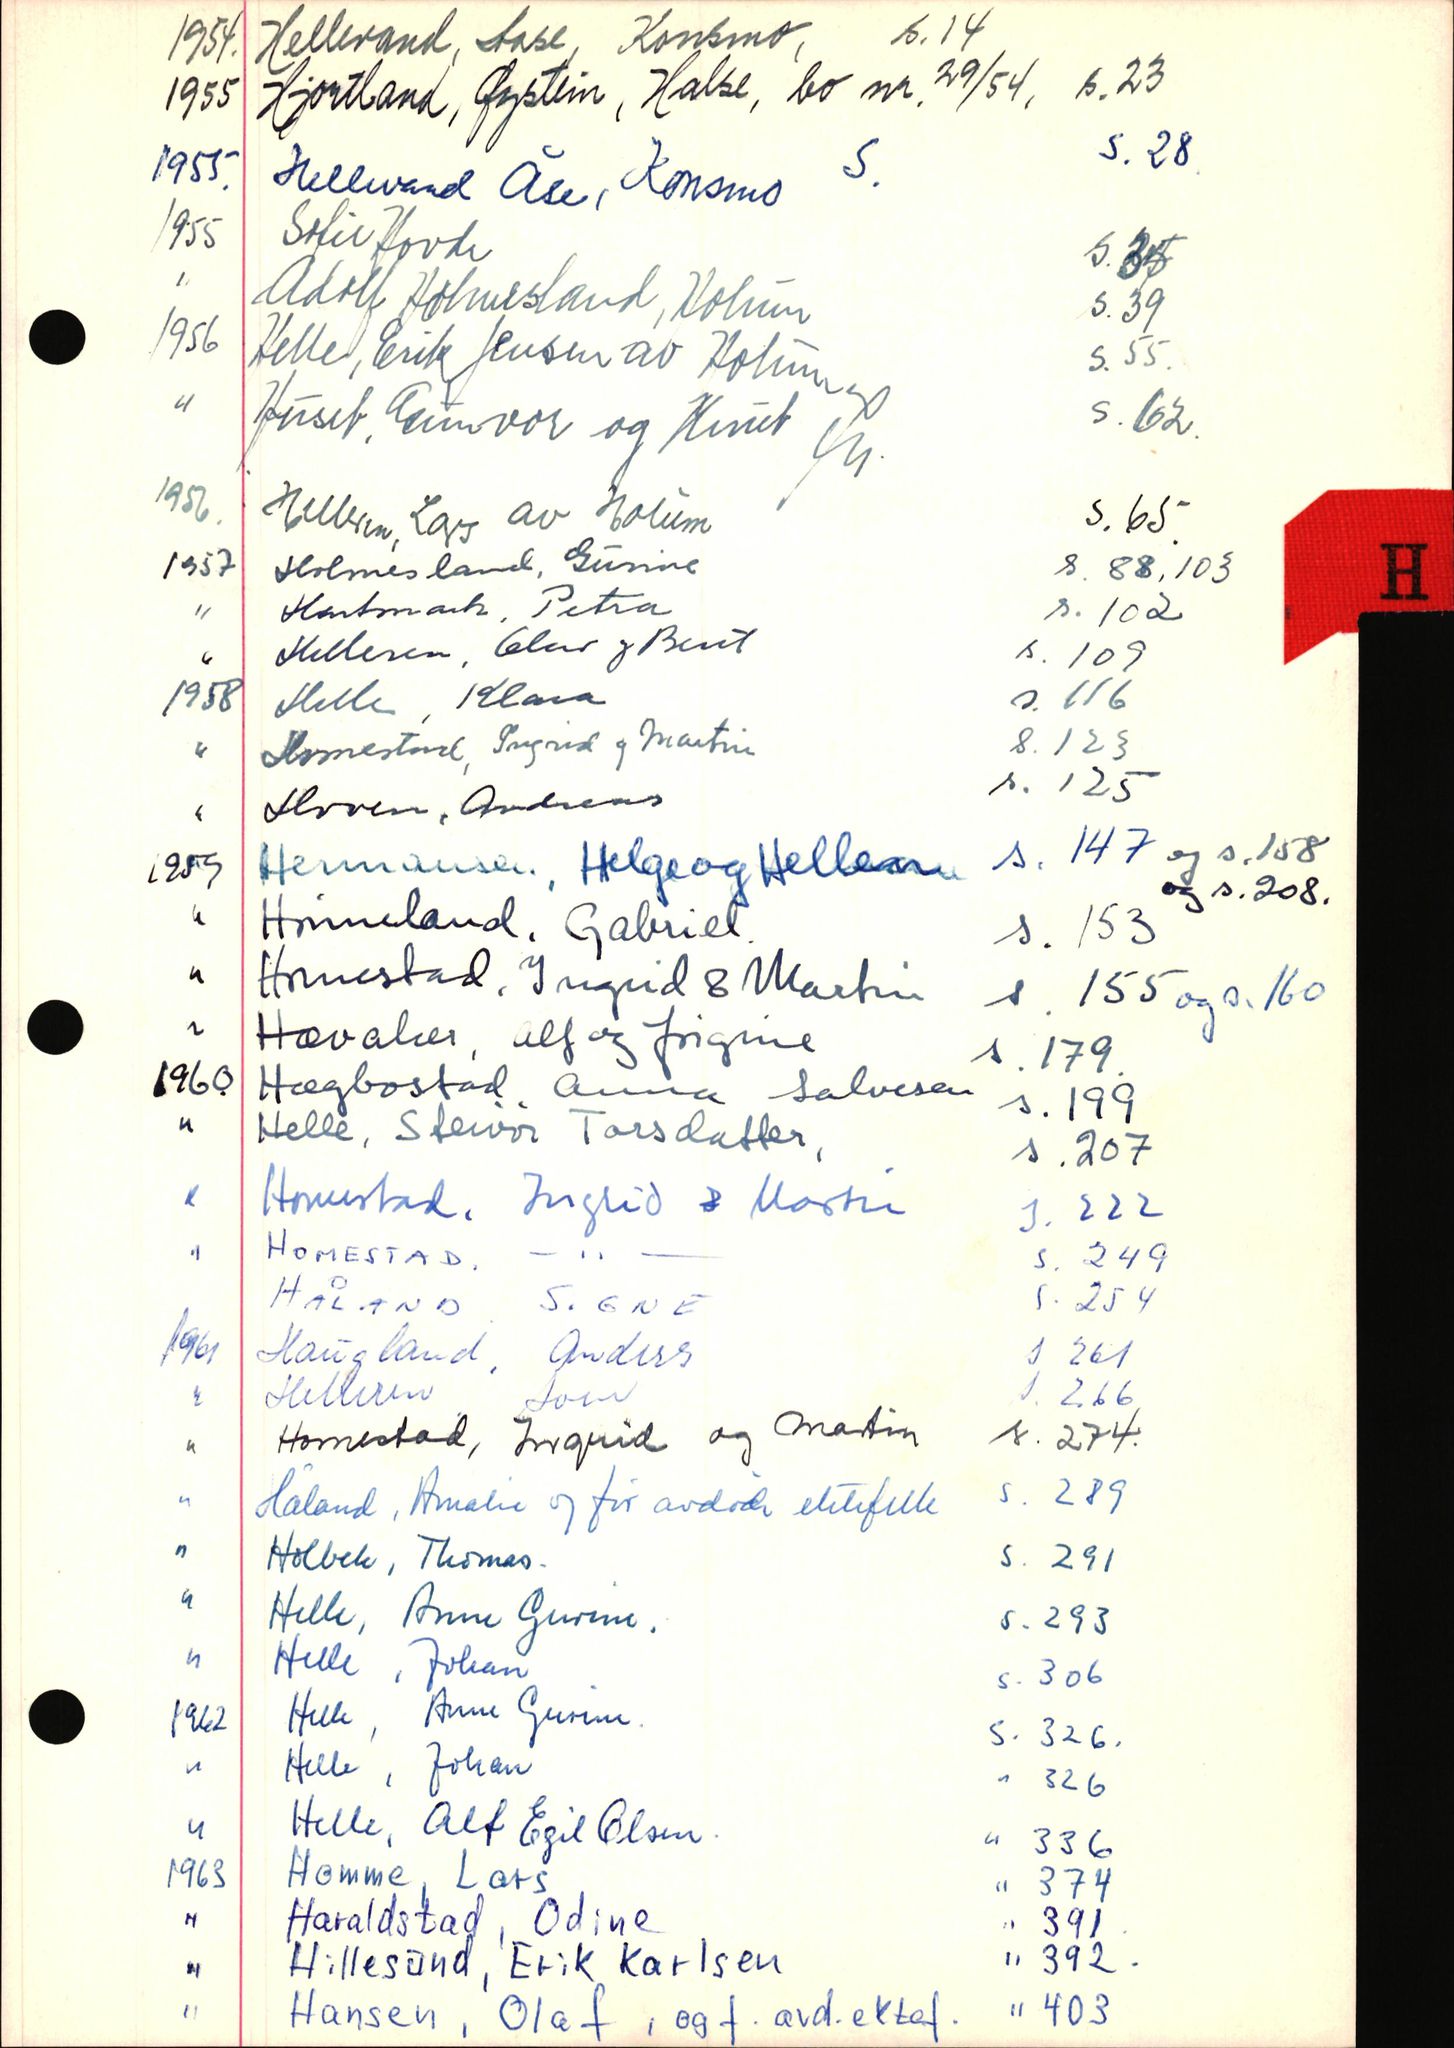 1954. Hellevand, Aase, Konsmo, s. 14
1955 Hjortland, Øystein, Halse, bo nr. 29/54, s. 23
1955. Hellevand Åse, Konsmo S. s. 28
1955 Sofie Hovde s.
" Adolf Holmesland, Holum s. 39
1956 Helle, Erik Jensen av Holum s. 55.
" Huset, Gunvor og Knut s. 62.
1956. Helleren, Lars av Holum s. 65.
H
1957 Holmesland, Gurine s. 88, 103
" Hartmark, Petra s. 102
" Helleren, Olav og Berit s. 109
1958 Helle, Klara s. 116
" Homestad, Ingrid og Martin s. 123
" Hoven, Andreas s. 125
1959 Hermansen, Helge og Hellen s. 147 og s. 158
og s. 208.
" Honneland, Gabriel. s. 153
" Homestad, Ingrid & Martin s. 155 og s. 160
" Hævaker, Alf og Jørgine s. 179.
1960 Hægbostad, Anna Salvesen s. 199
" Helle, Steivör Torsdatter, s. 207
" Homestad, Ingrid & Martin s. 222
" HOMESTAD. — " — s. 249
HÅLAND SIGNE s. 254
1961 Haugland, Anders s 261
" Helleren s. 266
" Homestad, Ingrid og Martin s. 274.
" Håland, Amalie og før avdøde ektefelle s. 289
" Holbek, Thomas. s. 291
" Helle, Anne Gurine. s. 293
" Helle, Johan s. 306
1962 Helle, Anne Gurine. s. 326.
" Helle, Johan " 326
" Helle, Alf Egil Olsen. " 336
1963 Homme, Lars " 374
" Haraldstad, Odine " 391.
" Hillesund, Erik Karlsen " 392.
" Hansen, Olaf, og f. avd. ektef. " 403